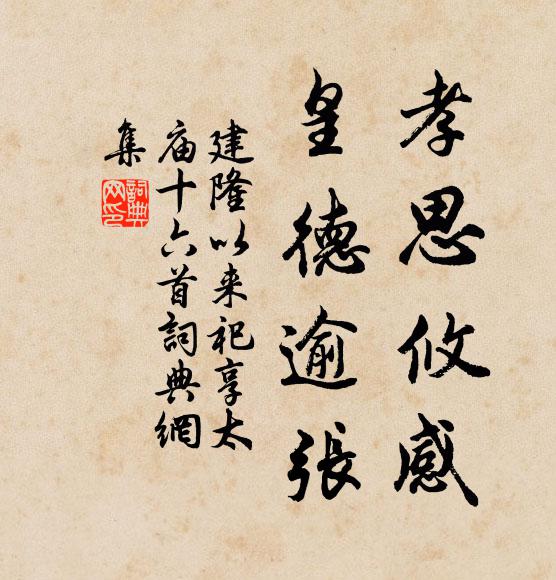 孝思攸感
皇德逾張
建隆以来祀享太
庙十六首詞典網
集
詞典
网印